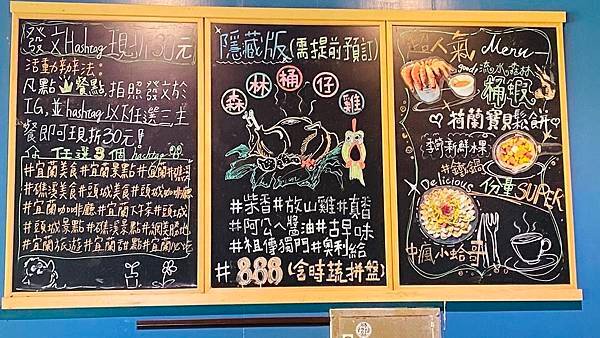 發文Hashtag現折30元
活動辦法:
凡點餐點拍照發文於
IG,並hashtag以下任選三主
餐即可現折30元!
任選3個hashtag
#宜蘭美食#宜蘭景點#宜蘭#礁溪
#礁溪美食#頭城美食#頭城咖啡廳
#宜蘭咖啡廳#宜蘭下午茶#頭城
#頭城景點#礁溪景點#網美勝地
#宜蘭旅遊#宜蘭甜點#宜蘭
隱藏版(需提前預訂)
森林桶仔雞
#柴香#放山雞#真香
#阿公ㄟ醬油#古早味
#祖傳獨門#奧利給
#888(含時蔬拼盤)
超人氣 Menu
good 流水の森林
荷蘭寶貝鬆餅
#新鮮水果
#鑄鐵鍋
Delicious 份量SUPER